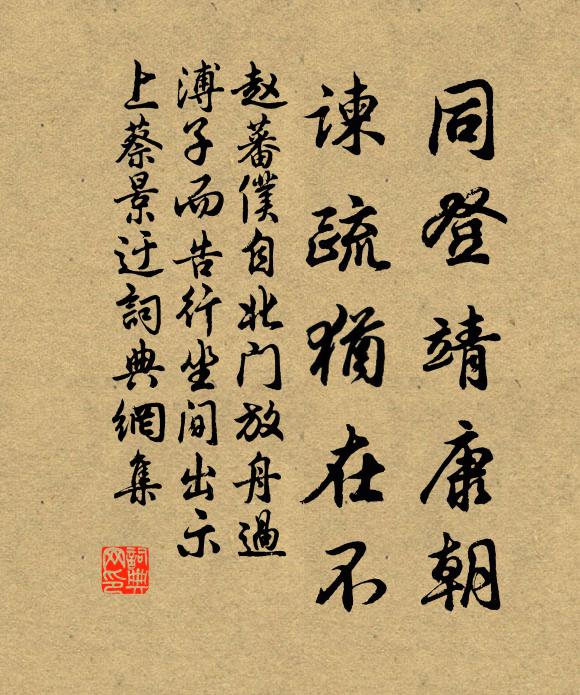 同登靖康朝
諫疏猶在不
赵蕃僕自北门放舟過
溥子而告行坐间出示
上蔡景迂詞典網集
詞典网印